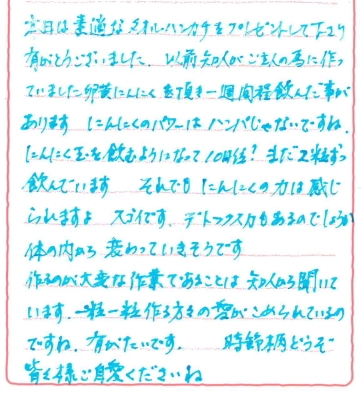 先日は素適なタオルハンカチをプレゼントして下さり
有がとうございました。以前知人がご主人の為に作っ
ていました卵黄にんにくを頂き一週間程飲んだ事が
あります にんにくのパワーはハンパじゃないですね。
にんにく玉を飲むようになって10日位? まだ2粒ずつ
飲んでいます それでもにんにくの力は感じ
られますよ スゴイです。デトックス力もあるのでしょうか
体の内から変わっていきそうです
作るのが大変な作業であることは知人から聞いて
います。一粒一粒作る方々の愛がこめられているの
ですね。有がたいです。 時節柄どうぞ
皆々様ご自愛くださいね